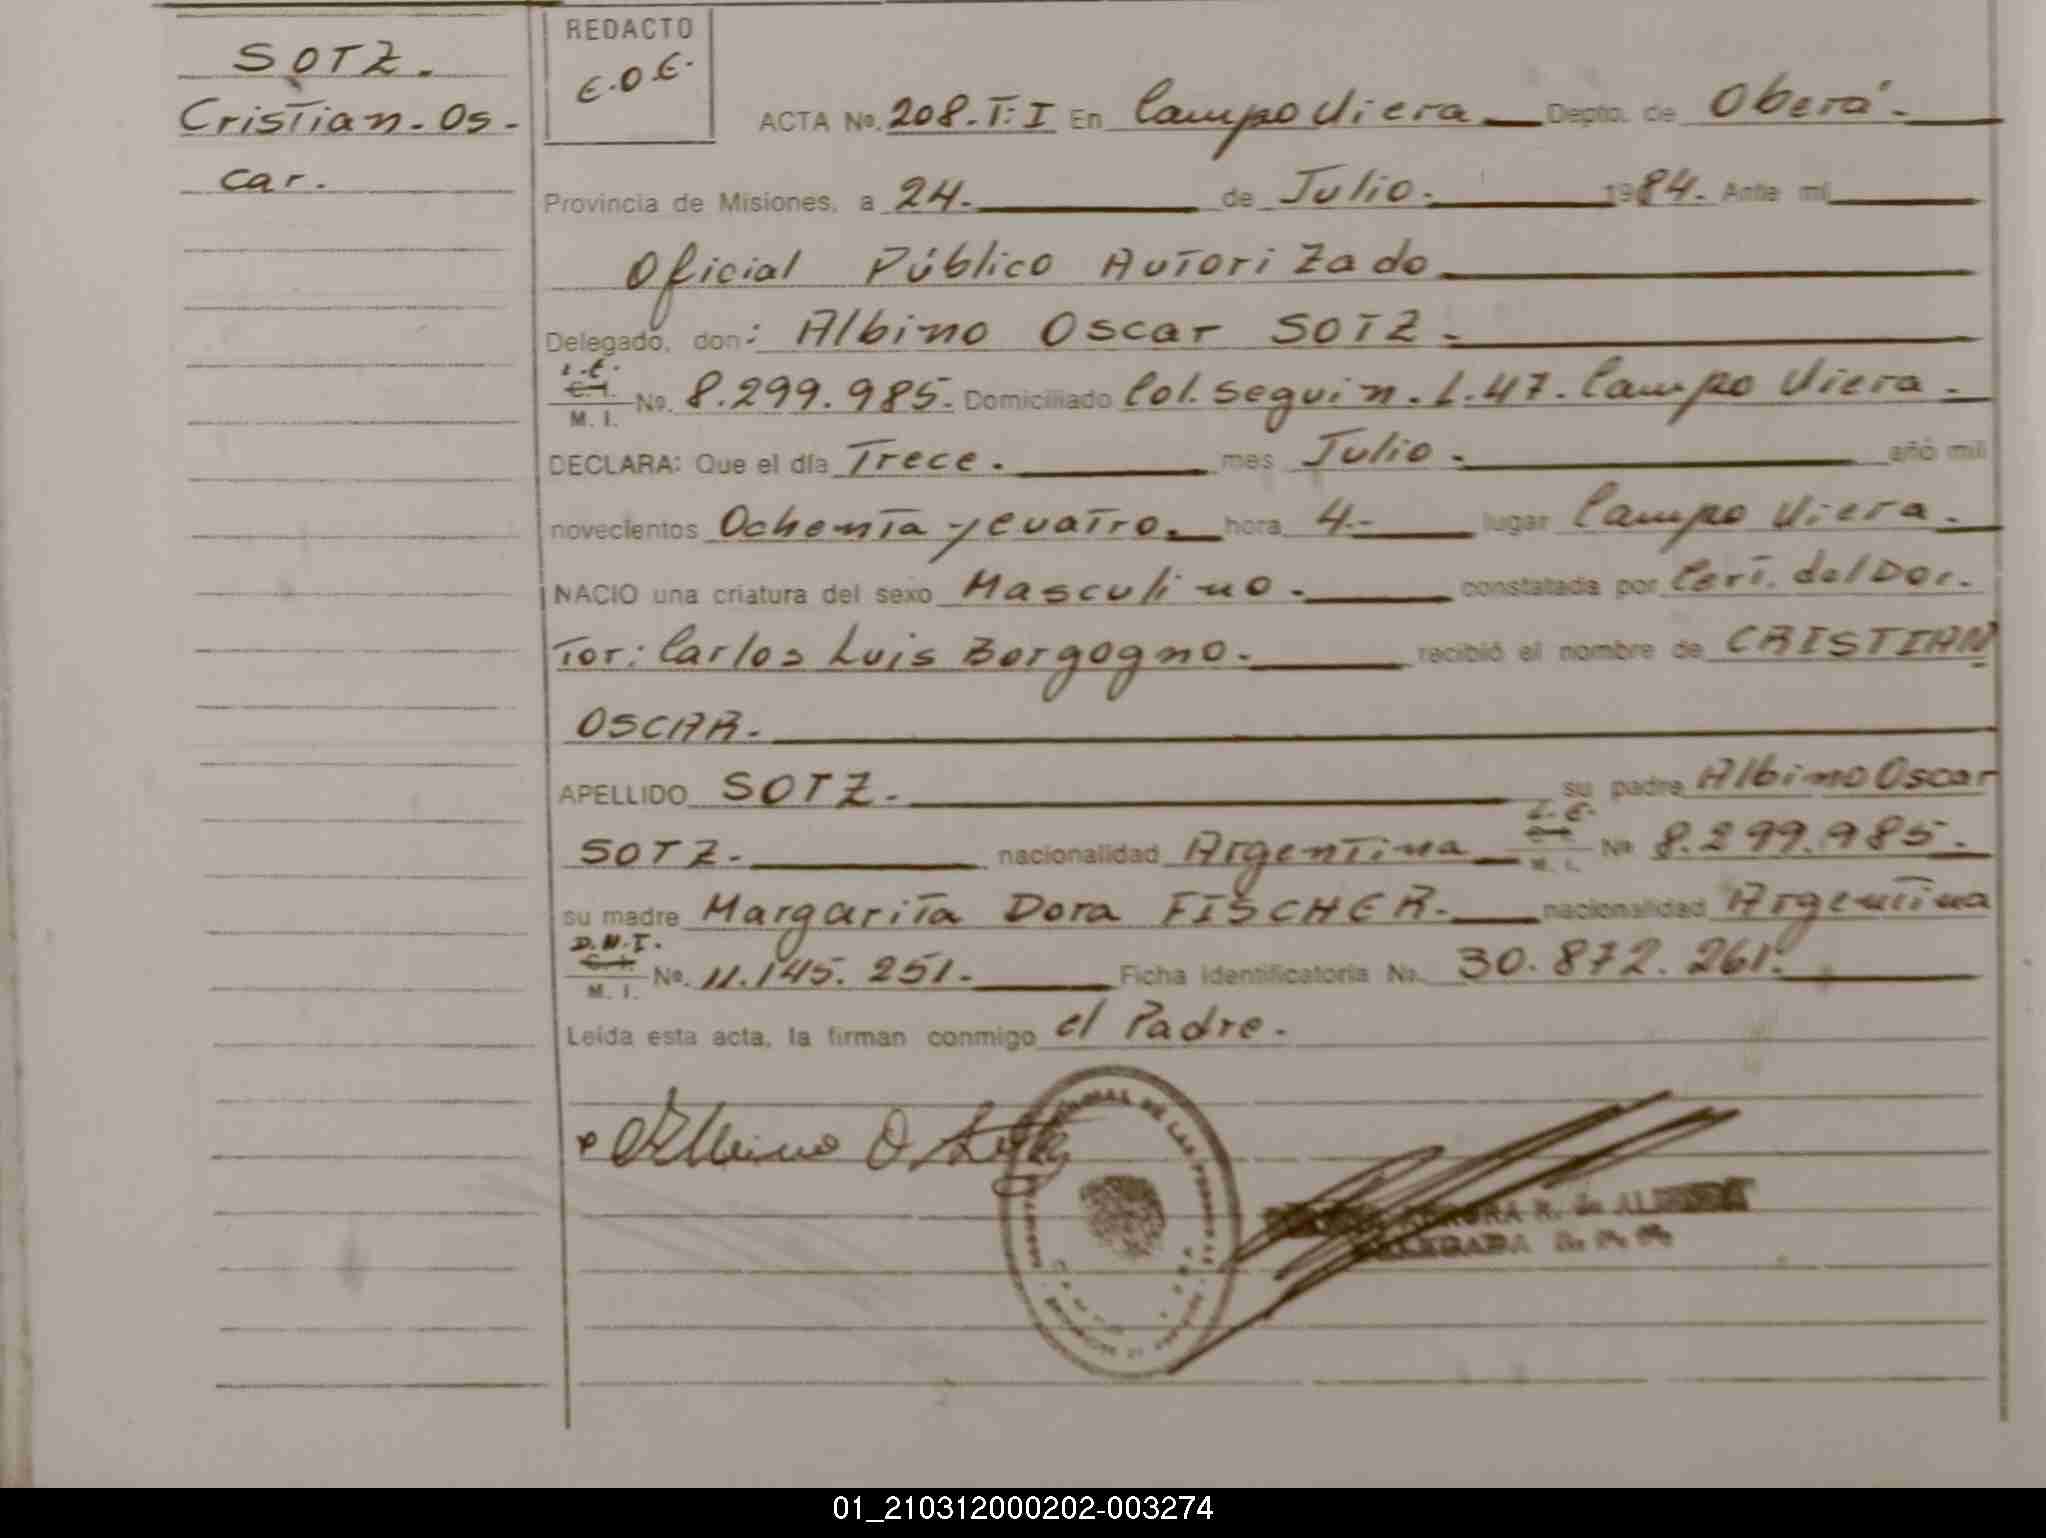 SOTZ.
Cristian-Os-
car.
REDACTO
E.O.E.
ACTA No. 208.T:I En Campo Viera Depto. de Oberá.
Provincia de Misiones, a 24. de Julio. 1984. Ante mi
Oficial Público Autorizado
Delegado, don: Albino Oscar SOTZ.
L.E.
C.I.
M. I.
No. 8.299.985. Domiciliado Col. Seguin. L.47. Campo Viera.
DECLARA: Que el día Trece. mes Julio. año mil
novecientos Ochenta y cuatro. hora 4.- lugar Campo Viera.
NACIO una criatura del sexo Masculino. constatada por Cert. del Doc.
Tor: Carlos Luis Borgogno. recibió el nombre de CRISTIAN
OSCAR.
APELLIDO SOTZ. su padre Albino Oscar
L.E.
C.I.
M. I.
SOTZ. nacionalidad Argentina No 8.299.985.
su madre Margarita Dora FISCHER. nacionalidad Argentina
D.N.I.
C.I.
M. I.
No. 11.145.251. Ficha identificatoria No. 30.872.261.
Leída esta acta, la firman conmigo el Padre.
Albino O Sotz
DE LAS PERSONAS
R. de
DELEGADA
01_210312000202-003274